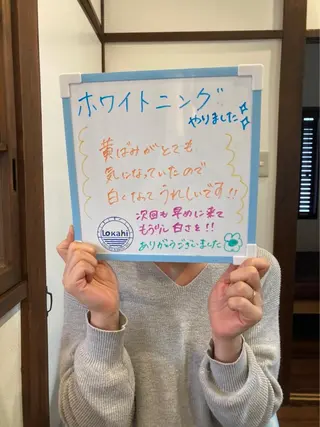 ホワイトニング
やりました
黄ばみがとても
気になっていたので
白くなって うれしいです!!
次回も早めに来て
もう少し白さを!!
ありがとうございました
Lokahi